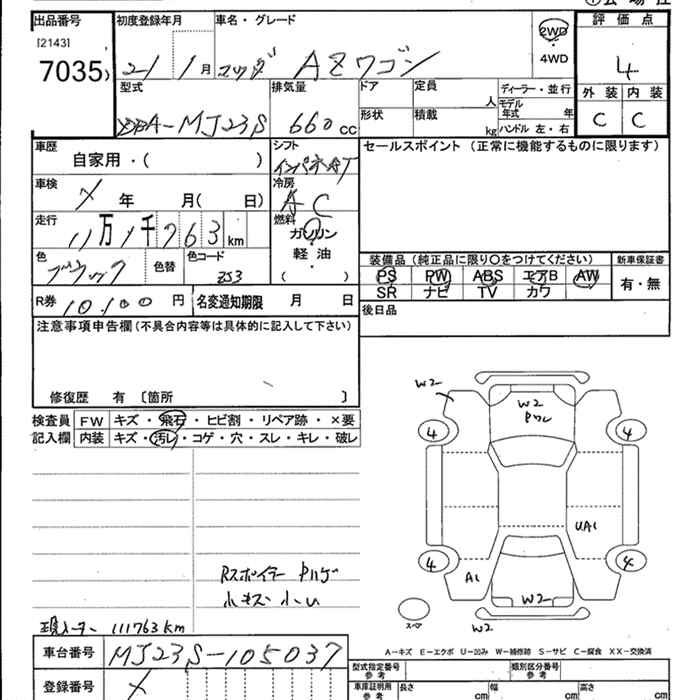 出品番号 初度登録年月 車名・グレード 2WD 評価点
[2143]
7035 21 1月 マツダ AZワゴン 4WD 4
型式 排気量 ドア 定員 人 ディーラー・並行 外装 内装
DBA-MJ23S 660cc 形状 積載 kg モデル年式 年 C C
ハンドル 左・右
車歴 シフト セールスポイント (正常に機能するものに限ります)
自家用・( ) インパネAT
車検 冷房
年 月( 日) AC
走行 燃料
11万1千763km ガソリン
色 色替 色コード 軽油・
ブラック ZJ3 ( ) 装備品 (純正品に限り〇をつけてください) 新車保証書
PS PW ABS エアB AW 有・無
R券 10,100円 名変通知期限 月 日 SR ナビ TV カワ
注意事項申告欄 (不具合内容等は具体的に記入して下さい) 後日品
修復歴 有 〔箇所 〕
検査員 FW キズ・飛石・ヒビ割・リペア跡・×要
記入欄 内装 キズ・汚レ・コゲ・穴・スレ・キレ・破レ
W2
W2
4 4
UA1
4 4
A1
W2
スペア W2
Rスポイラー
小キズ 小U
現メーター 111763km
A-キズ E-エクボ U-凹み W-補修跡 S-サビ C-腐食 XX-交換済
車台番号 MJ23S-105037
型式指定番号 参考 類別区分番号 参考
登録番号
車庫証明用 参考 長さ cm 幅 cm 高さ cm